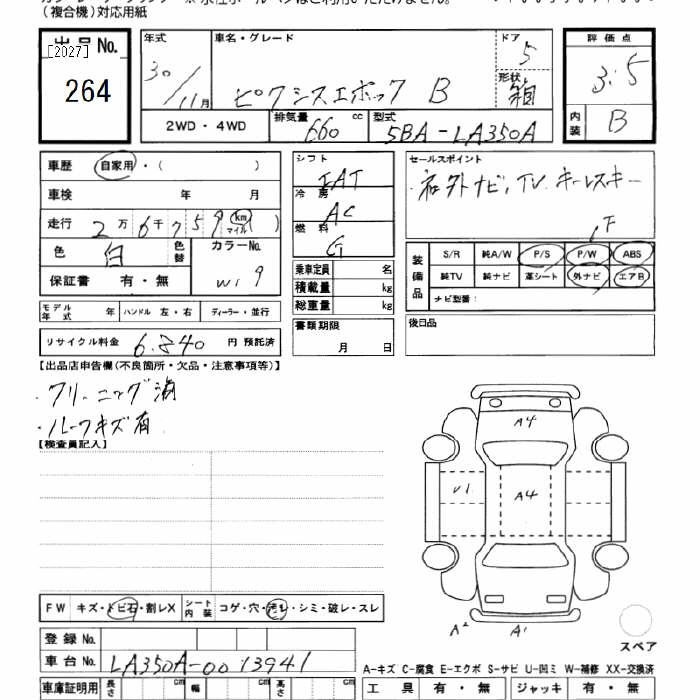 （複合機）対応用紙
出品No.
[2027]
264
年式
30／11月
車名・グレード
ピクシスエポック B
ドア
5
形状
箱
2WD・4WD
排気量
660 cc
型式
5BA-LA350A
評価点
3.5
内装
B
車歴 自家用・（ ）
車検 年 月
走行 2万6千759 km マイル（ ）
色 白 色替
カラーNo. W19
保証書 有・無
モデル年式 年 ハンドル 左・右 ディーラー・並行
リサイクル料金 6,840 円 預託済
シフト
IAT
冷房
AC
燃料
G
乗車定員 名
積載量 kg
総重量 kg
書類期限
月 日
セールスポイント
ナビ、TV キーレスキー
F
装備品
S/R 純A/W P/S P/W ABS
純TV 純ナビ 革シート 外ナビ エアB
ナビ型番：
後日品
【出品店申告欄（不良箇所・欠品・注意事項等）】
・クリーニング済
・ルーフキズ有
【検査員記入】
A4
U1
A4
A2 A1
スペア
FW キズ・トビ石・割レX シート内装 コゲ・穴・汚レ・シミ・破レ・スレ
登録No.
車台No. LA350A-0013941
A-キズ C-腐食 E-エクボ S-サビ U-凹ミ W-補修 XX-交換済
車庫証明用 長さ cm 幅 cm 高さ cm
工具 有・無 ジャッキ 有・無